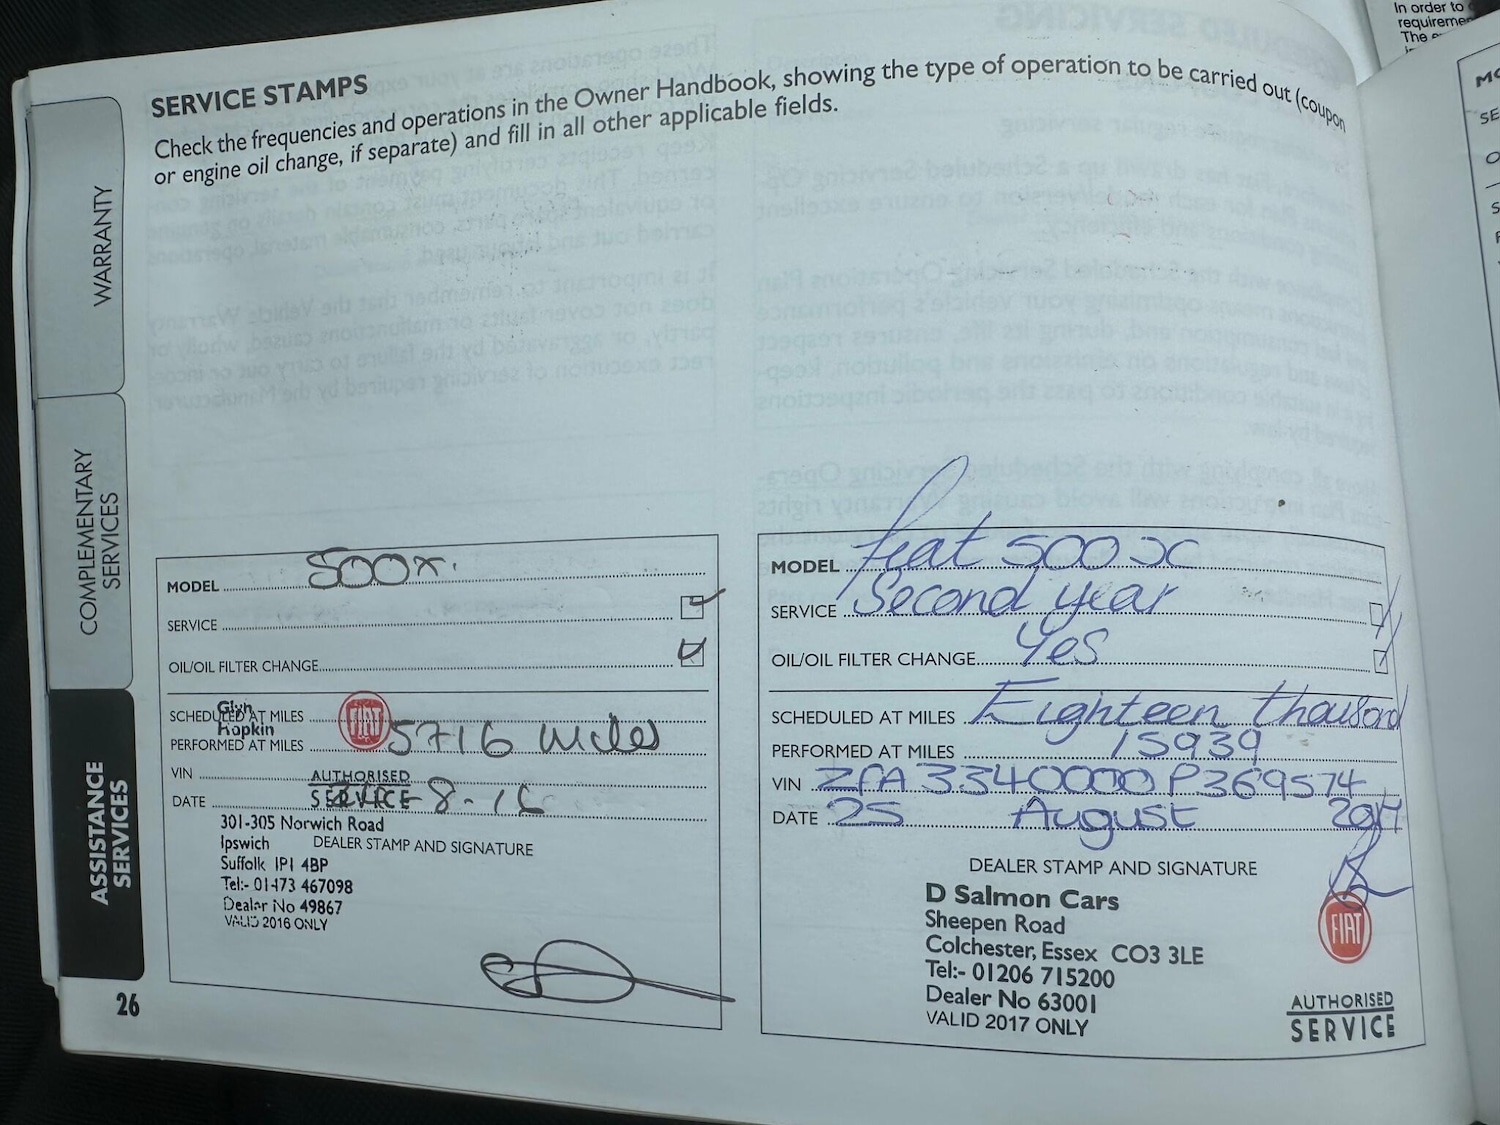 In order to
requireme
The
SERVICE STAMPS
Check the frequencies and operations in the Owner Handbook, showing the type of operation to be carried out (coupon
or engine oil change, if separate) and fill in all other applicable fields.
WARRANTY
COMPLEMENTARY
SERVICES
ASSISTANCE
SERVICES
MODEL 500x.
SERVICE
OIL/OIL FILTER CHANGE
Glyn
SCHEDULED AT MILES
Hopkin
FIAT
PERFORMED AT MILES 5716 miles
VIN
AUTHORISED
DATE
SERVICE
8-16
301-305 Norwich Road
Ipswich
DEALER STAMP AND SIGNATURE
Suffolk IP1 4BP
Tel:- 01473 467098
Dealer No 49867
VALID 2016 ONLY
26
MODEL Fiat 500X
SERVICE Second year
OIL/OIL FILTER CHANGE Yes
SCHEDULED AT MILES Eighteen thousand
PERFORMED AT MILES 15939
VIN ZFA3340000P369574
DATE 25 August 2017
DEALER STAMP AND SIGNATURE
D Salmon Cars
Sheepen Road
Colchester, Essex CO3 3LE
Tel:- 01206 715200
Dealer No 63001
VALID 2017 ONLY
FIAT
AUTHORISED
SERVICE